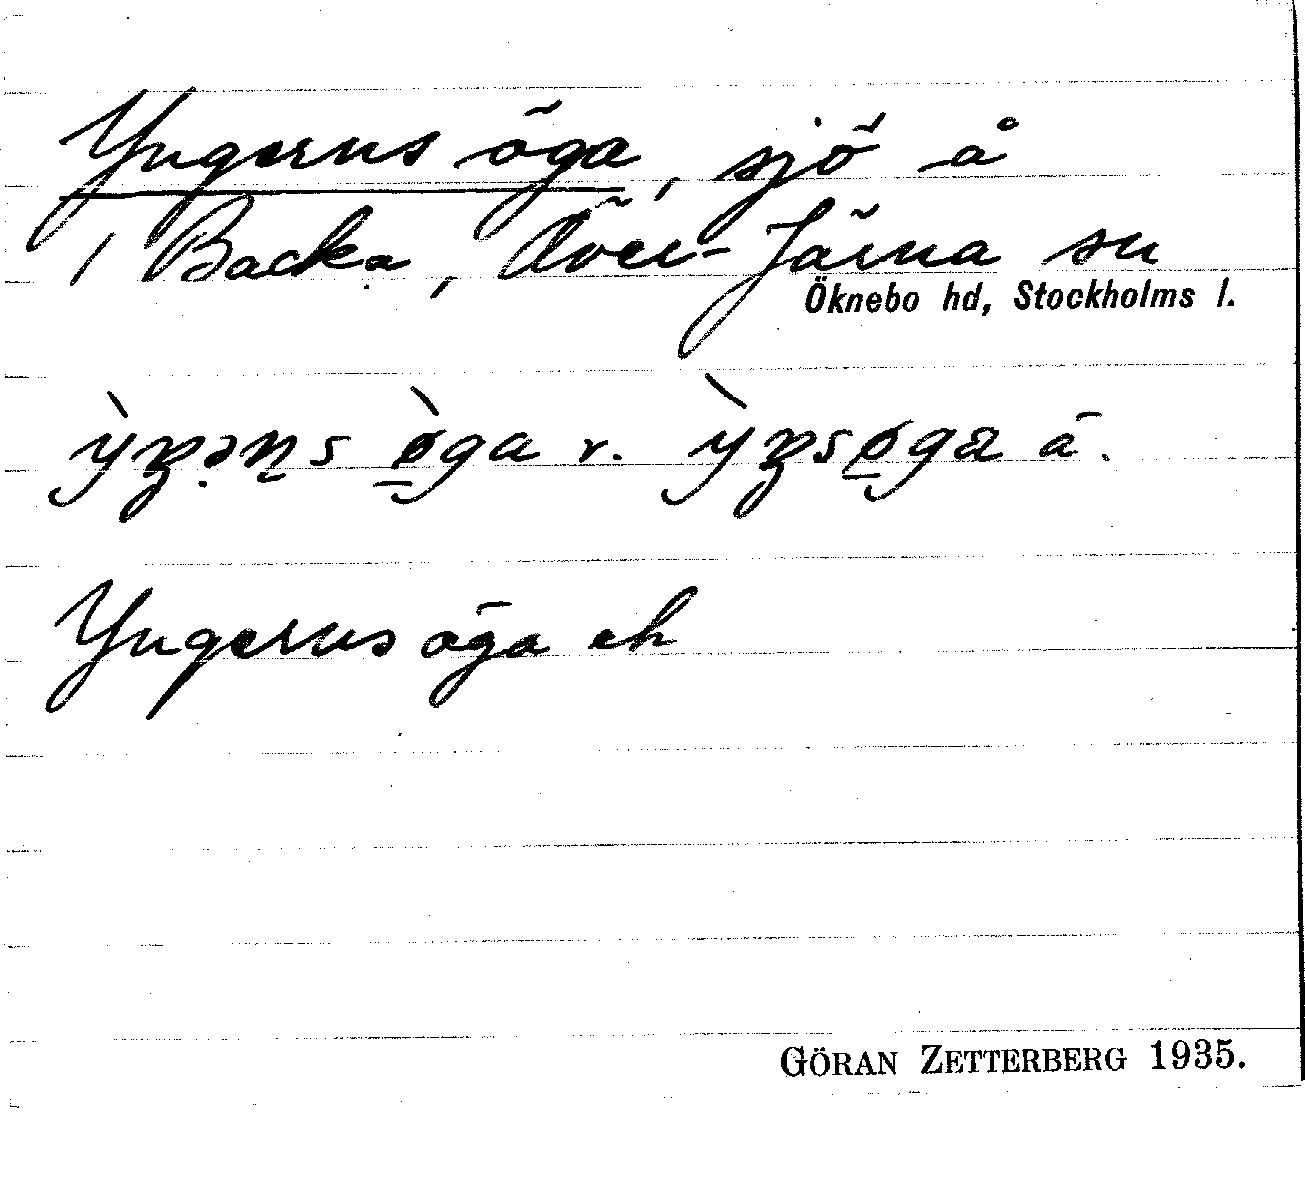 Yngerns öga, sjö å
1 Backa, Över-Järna sn
Öknebo hd, Stockholms l.
ỳŋəɳs ø̀ga r. ỳŋsøga ā.
Yngerns öga ek
GÖRAN ZETTERBERG 1935.